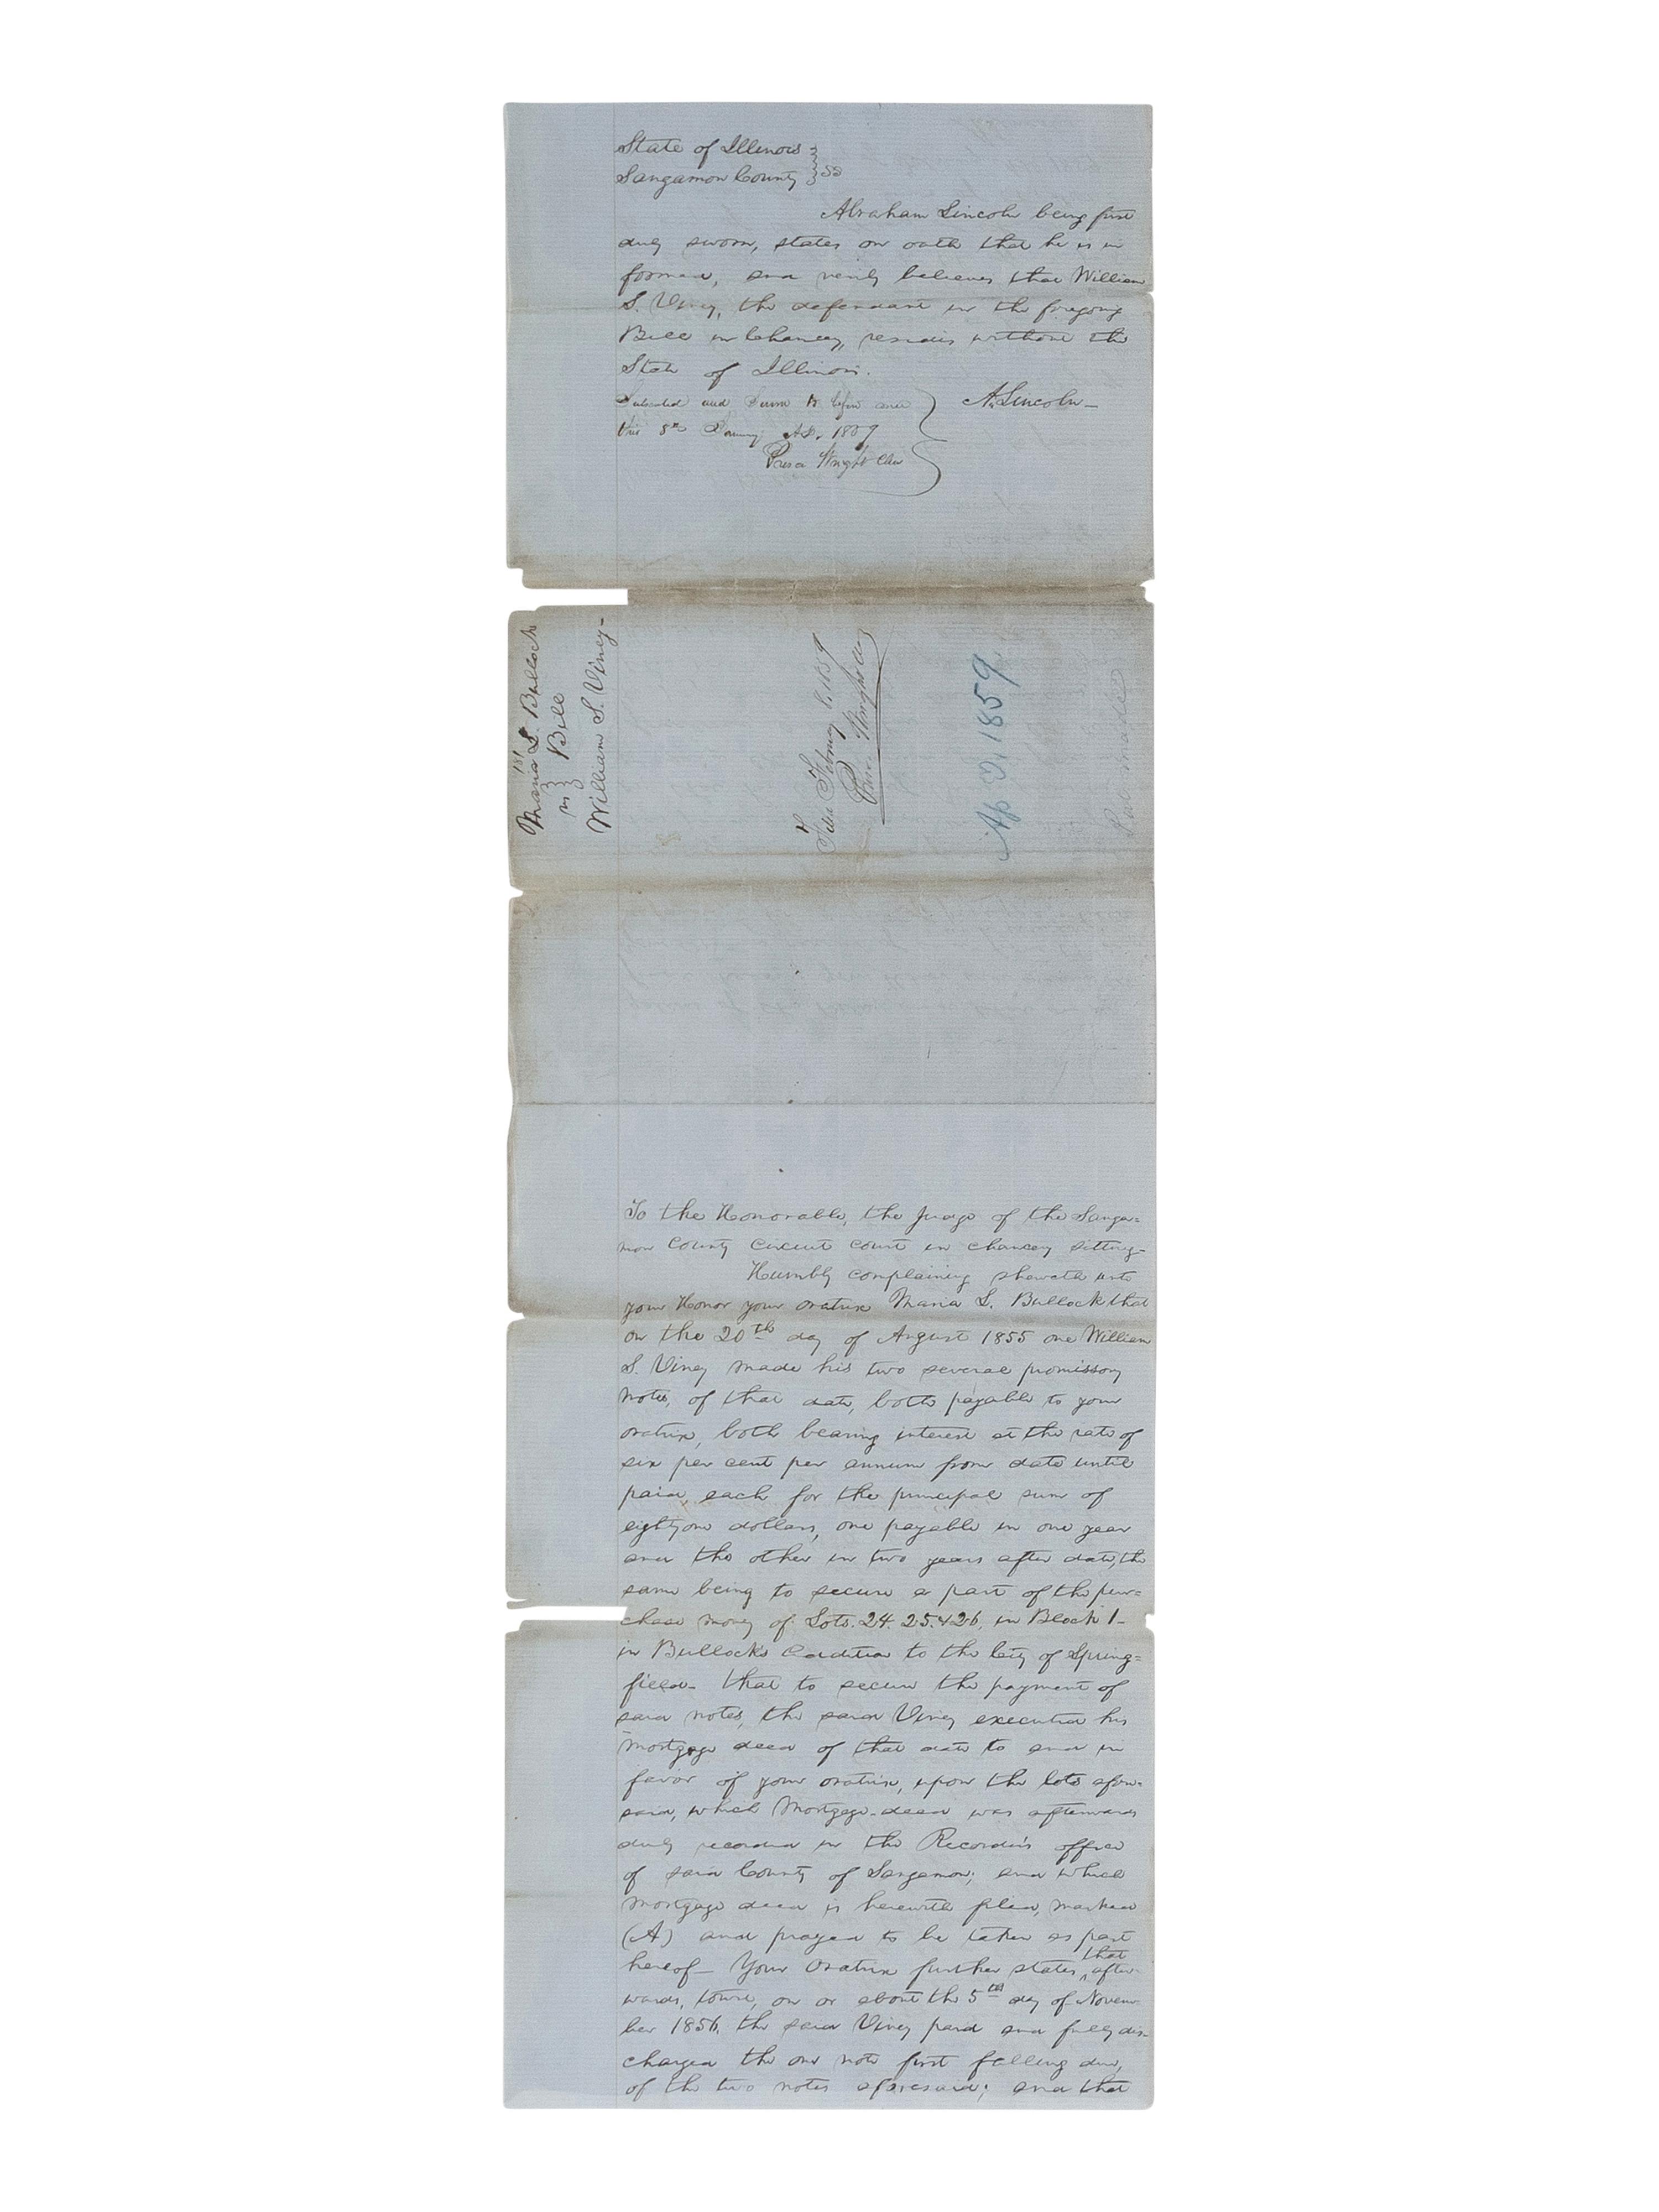 State of Illinois
Sangamon County } SS
Abraham Lincoln being first
duly sworn, states on oath that he is in
formed, and verily believes that William
S. Viney, the defendant in the foregoing
Bill in Chancery, resides without the
State of Illinois.
A. Lincoln
Subscribed and Sworn to before me
this 8th AD. 1859
Presco Wright Clerk
181
Maria L. Bullock
vs } Bill
William S. Viney-
Filed February 8, 1859
Presco Wright Clk
1859
To the Honorable, the Judge of the Sanga=
mon County Circuit Court in chancery sitting-
Humbly complaining sheweth unto
your Honor your oratrix Maria L. Bullock that
on the 20th day of August 1855 one William
S. Viney made his two several promissory
notes, of that date, both payable to your
oratrix, both bearing interest at the rate of
six per cent per annum from date until
paid, each for the principal sum of
eighty one dollars, one payable in one year
and the other in two years after date, the
same being to secure a part of the pur=
chase money of Lots. 24. 25. & 26, in Block 1-
in Bullock's addition to the City of Spring=
field- that to secure the payment of
said notes, the said Viney executed his
mortgage deed of that date to and in
favor of your oratrix, upon the lots afore-
said, which Mortgage-deed was afterwards
duly recorded in the Recorder's office
of said County of Sangamon; and which
mortgage deed is herewith filed, marked
(A) and prayed to be taken as part
hereof- Your oratrix further states ^that after-
wards, towit, on or about the 5th day of Novem-
ber 1856, the said Viney paid and fully dis-
charged the one note first falling due,
of the two notes aforesaid; and that